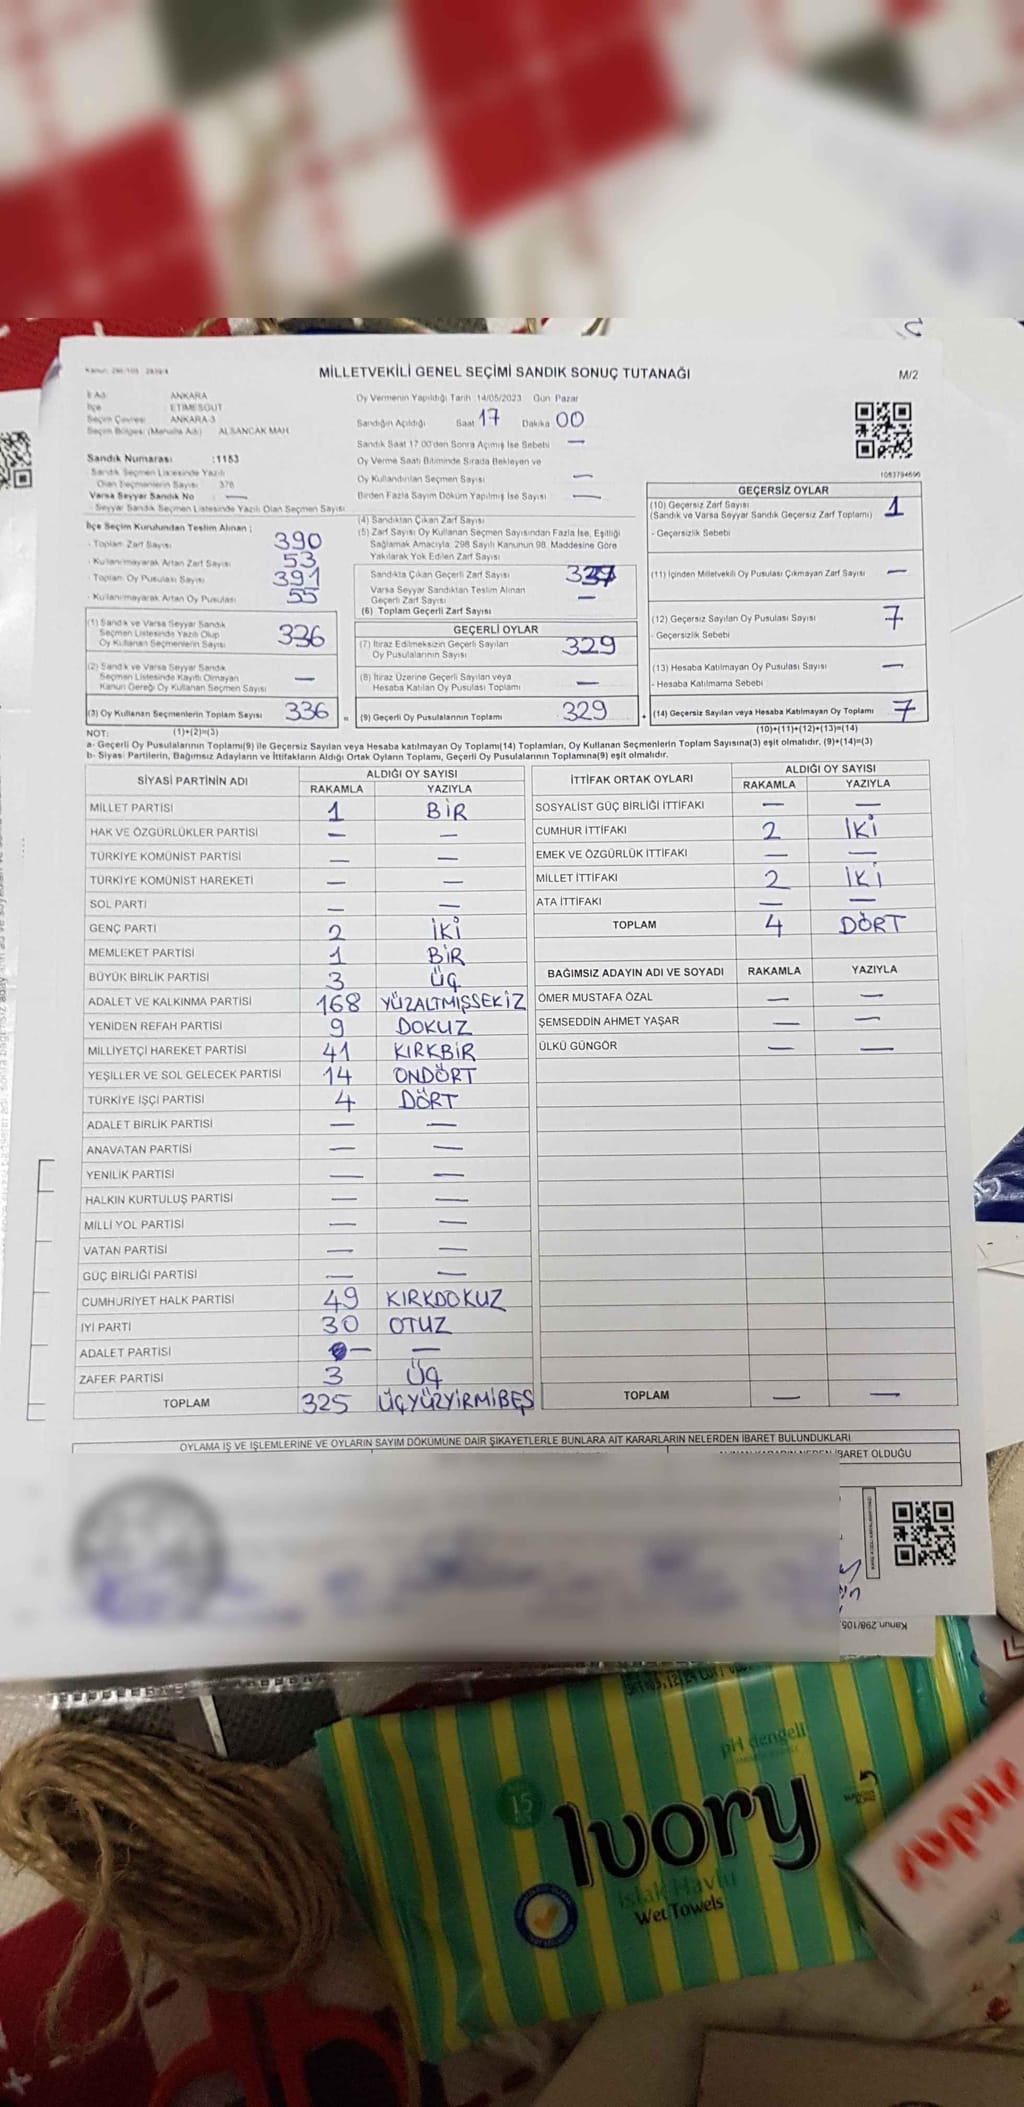 MİLLETVEKİLİ GENEL SEÇİMİ SANDIK SONUÇ TUTANAĞI
M/2
İl Adı ANKARA
İlçe ETİMESGUT
Seçim Çevresi ANKARA-3
Seçim Bölgesi (Mahalle Adı) ALSANCAK MAH.
Sandık Numarası :1153
Sandık Seçmen Listesinde Yazılı
Olan Seçmenlerin Sayısı 376
Varsa Seyyar Sandık No —
Seyyar Sandık Seçmen Listesinde Yazılı Olan Seçmen Sayısı
Oy Vermenin Yapıldığı Tarih :14/05/2023 Gün Pazar
Sandığın Açıldığı Saat 17 Dakika 00
Sandık Saat 17.00'den Sonra Açılmış İse Sebebi —
Oy Verme Saati Bitiminde Sırada Bekleyen ve
Oy Kullandırılan Seçmen Sayısı —
Birden Fazla Sayım Döküm Yapılmış İse Sayısı —
1083794696
İlçe Seçim Kurulundan Teslim Alınan ;
- Toplam Zarf Sayısı 390
- Kullanılmayarak Artan Zarf Sayısı 53
- Toplam Oy Pusulası Sayısı 391
- Kullanılmayarak Artan Oy Pusulası 55
(1) Sandık ve Varsa Seyyar Sandık
Seçmen Listesinde Yazılı Olup
Oy Kullanan Seçmenlerin Sayısı 336
(2) Sandık ve Varsa Seyyar Sandık
Seçmen Listesinde Kayıtlı Olmayan
Kanun Gereği Oy Kullanan Seçmen Sayısı —
(3) Oy Kullanan Seçmenlerin Toplam Sayısı 336
(4) Sandıktan Çıkan Zarf Sayısı
(5) Zarf Sayısı Oy Kullanan Seçmen Sayısından Fazla İse, Eşitliği
Sağlamak Amacıyla, 298 Sayılı Kanunun 98. Maddesine Göre
Yakılarak Yok Edilen Zarf Sayısı
Sandıkta Çıkan Geçerli Zarf Sayısı
Varsa Seyyar Sandıktan Teslim Alınan
Geçerli Zarf Sayısı —
(6) Toplam Geçerli Zarf Sayısı
GEÇERLİ OYLAR
(7) İtiraz Edilmeksizin Geçerli Sayılan
Oy Pusulalarının Sayısı 329
(8) İtiraz Üzerine Geçerli Sayılan veya
Hesaba Katılan Oy Pusulası Toplamı —
= (9) Geçerli Oy Pusulalarının Toplamı 329
GEÇERSİZ OYLAR
(10) Geçersiz Zarf Sayısı 1
(Sandık ve Varsa Seyyar Sandık Geçersiz Zarf Toplamı)
- Geçersizlik Sebebi
(11) İçinden Milletvekili Oy Pusulası Çıkmayan Zarf Sayısı —
(12) Geçersiz Sayılan Oy Pusulası Sayısı 7
- Geçersizlik Sebebi
(13) Hesaba Katılmayan Oy Pusulası Sayısı —
- Hesaba Katılmama Sebebi
+ (14) Geçersiz Sayılan veya Hesaba Katılmayan Oy Toplamı 7
NOT: (1)+(2)=(3)
(10)+(11)+(12)+(13)=(14)
a- Geçerli Oy Pusulalarının Toplamı(9) ile Geçersiz Sayılan veya Hesaba katılmayan Oy Toplamı(14) Toplamları, Oy Kullanan Seçmenlerin Toplam Sayısına(3) eşit olmalıdır. (9)+(14)=(3)
b- Siyasi Partilerin, Bağımsız Adayların ve İttifakların Aldığı Ortak Oyların Toplamı, Geçerli Oy Pusulalarının Toplamına(9) eşit olmalıdır.
SİYASİ PARTİNİN ADI ALDIĞI OY SAYISI
RAKAMLA YAZIYLA
MİLLET PARTİSİ 1 BİR
HAK VE ÖZGÜRLÜKLER PARTİSİ — —
TÜRKİYE KOMÜNİST PARTİSİ — —
TÜRKİYE KOMÜNİST HAREKETİ — —
SOL PARTİ — —
GENÇ PARTİ 2 İKİ
MEMLEKET PARTİSİ 1 BİR
BÜYÜK BİRLİK PARTİSİ 3 ÜÇ
ADALET VE KALKINMA PARTİSİ 168 YÜZALTMIŞSEKİZ
YENİDEN REFAH PARTİSİ 9 DOKUZ
MİLLİYETÇİ HAREKET PARTİSİ 41 KIRKBİR
YEŞİLLER VE SOL GELECEK PARTİSİ 14 ONDÖRT
TÜRKİYE İŞÇİ PARTİSİ 4 DÖRT
ADALET BİRLİK PARTİSİ — —
ANAVATAN PARTİSİ — —
YENİLİK PARTİSİ — —
HALKIN KURTULUŞ PARTİSİ — —
MİLLİ YOL PARTİSİ — —
VATAN PARTİSİ — —
GÜÇ BİRLİĞİ PARTİSİ — —
CUMHURİYET HALK PARTİSİ 49 KIRKDOKUZ
İYİ PARTİ 30 OTUZ
ADALET PARTİSİ — —
ZAFER PARTİSİ 3 ÜÇ
TOPLAM 325 ÜÇYÜZYİRMİBEŞ
İTTİFAK ORTAK OYLARI ALDIĞI OY SAYISI
RAKAMLA YAZIYLA
SOSYALİST GÜÇ BİRLİĞİ İTTİFAKI — —
CUMHUR İTTİFAKI 2 İKİ
EMEK VE ÖZGÜRLÜK İTTİFAKI — —
MİLLET İTTİFAKI 2 İKİ
ATA İTTİFAKI — —
TOPLAM 4 DÖRT
BAĞIMSIZ ADAYIN ADI VE SOYADI RAKAMLA YAZIYLA
ÖMER MUSTAFA ÖZAL — —
ŞEMSEDDİN AHMET YAŞAR — —
ÜLKÜ GÜNGÖR — —
TOPLAM — —
OYLAMA İŞ VE İŞLEMLERİNE VE OYLARIN SAYIM DÖKÜMÜNE DAİR ŞİKAYETLERLE BUNLARA AİT KARARLARIN NELERDEN İBARET BULUNDUKLARI
İBARET OLDUĞU
Kanun.298/105
pH dengeli
15
Ivory
Islak Havlu
Wet Towels